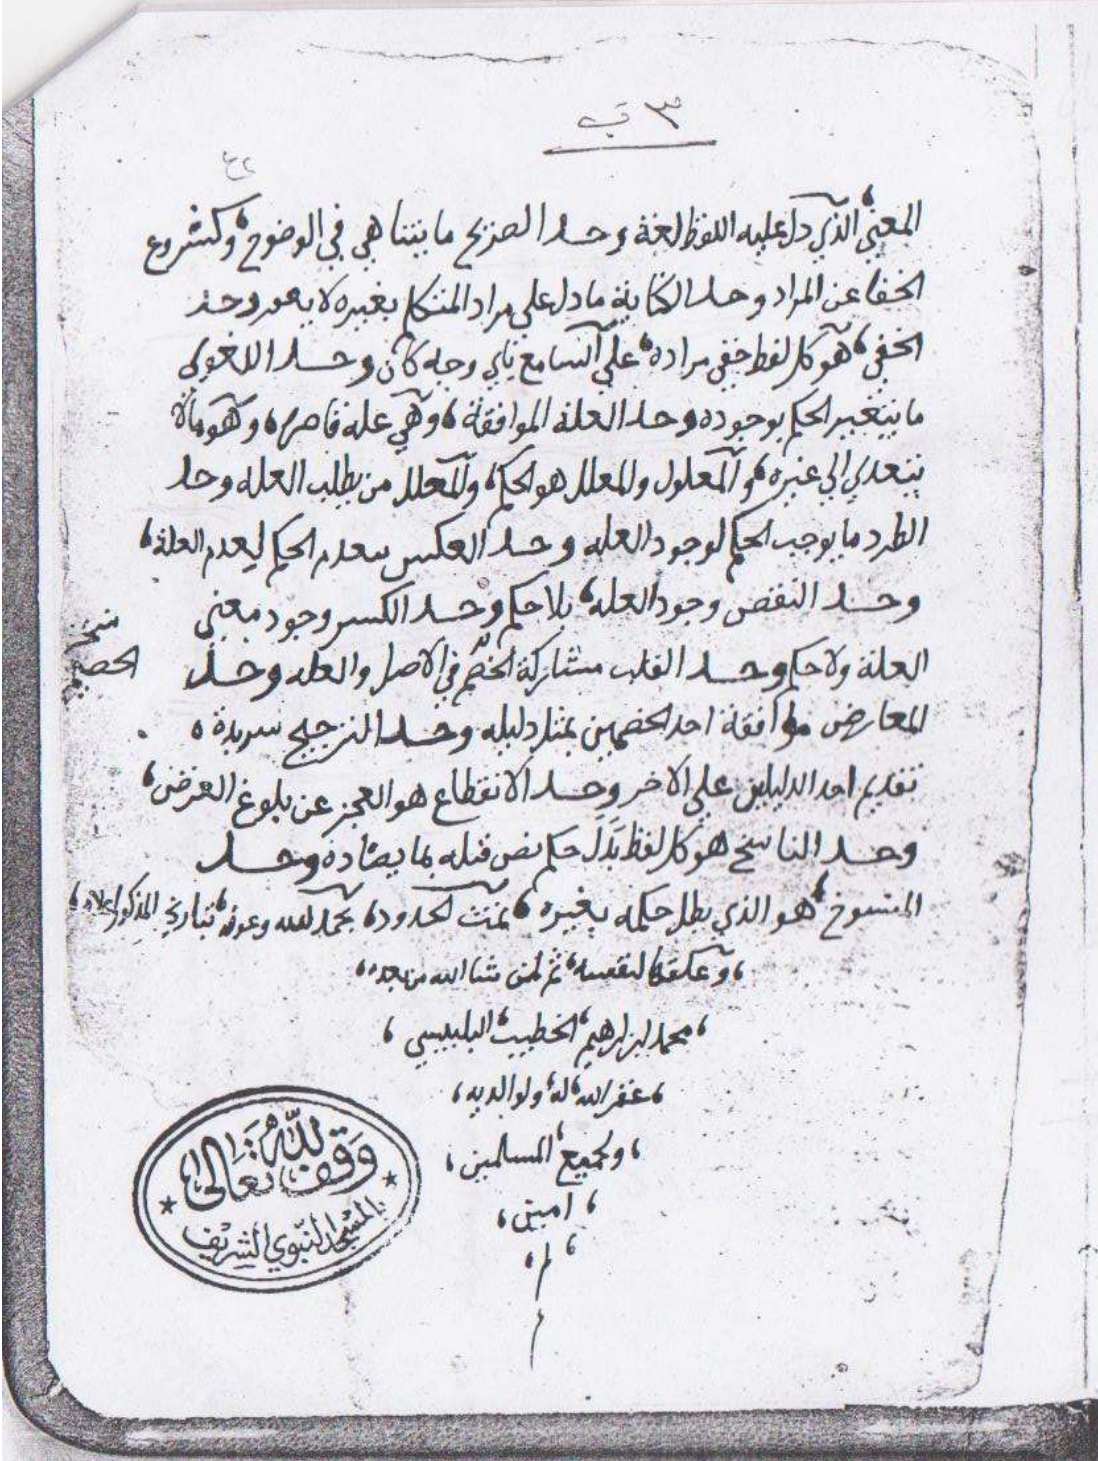 ٣ ب
المعني الذي دل عليه اللفظ لغة وحد الصريح ما يتناهي في الوضوح وكشروع
الخفا عن المراد وحد الكناية ما دل علي مراد المتكلم بغيره لا وحد
الخفي هو كل لفظ خفي مراده علي السامع باي وجه كان وحد اللغوي
ما يتغير الحكم بوجوده وحد العلة الموافقة وهي علة قاصره وهو مالا
يتعدي الي غيره والمعلول والمعلل هو الحكم والمعلل من يطلب العله وحد
الطرد ما يوجب الحكم لوجود العله وحد العكس بعدم الحكم ليعدم العلة
وحد النقض وجود العله بلا حكم وحد الكسر وجود معني
العلة ولا حكم وحد القلب مشاركة الخصم في الاصل والعله وحد
الخصم
المعارض موافقة احد الخصمين بمثل دليله وحد الترجيح
تقديم احد الدليلين علي الاخر وحد الانقطاع هو العجز عن بلوغ الغرض
وحد الناسخ هو كل لفظ بَدَلَ حكم نص قبله بما يضاده وحد
المنسوخ هو الذي بطل حكمه بغيره تمت الحدود بحمد الله وعونه بتاريخ المذكور اعلاه
وعلقها لنفسه ثم لمن شا الله من بعده
محمد ابن ابرهيم الخطيب البلبيسي
غفر الله له ولوالديه
ولجميع المسلمين
امين
م
وَقف للّه تعَالى
بالمسْجد النّبوي الشريف